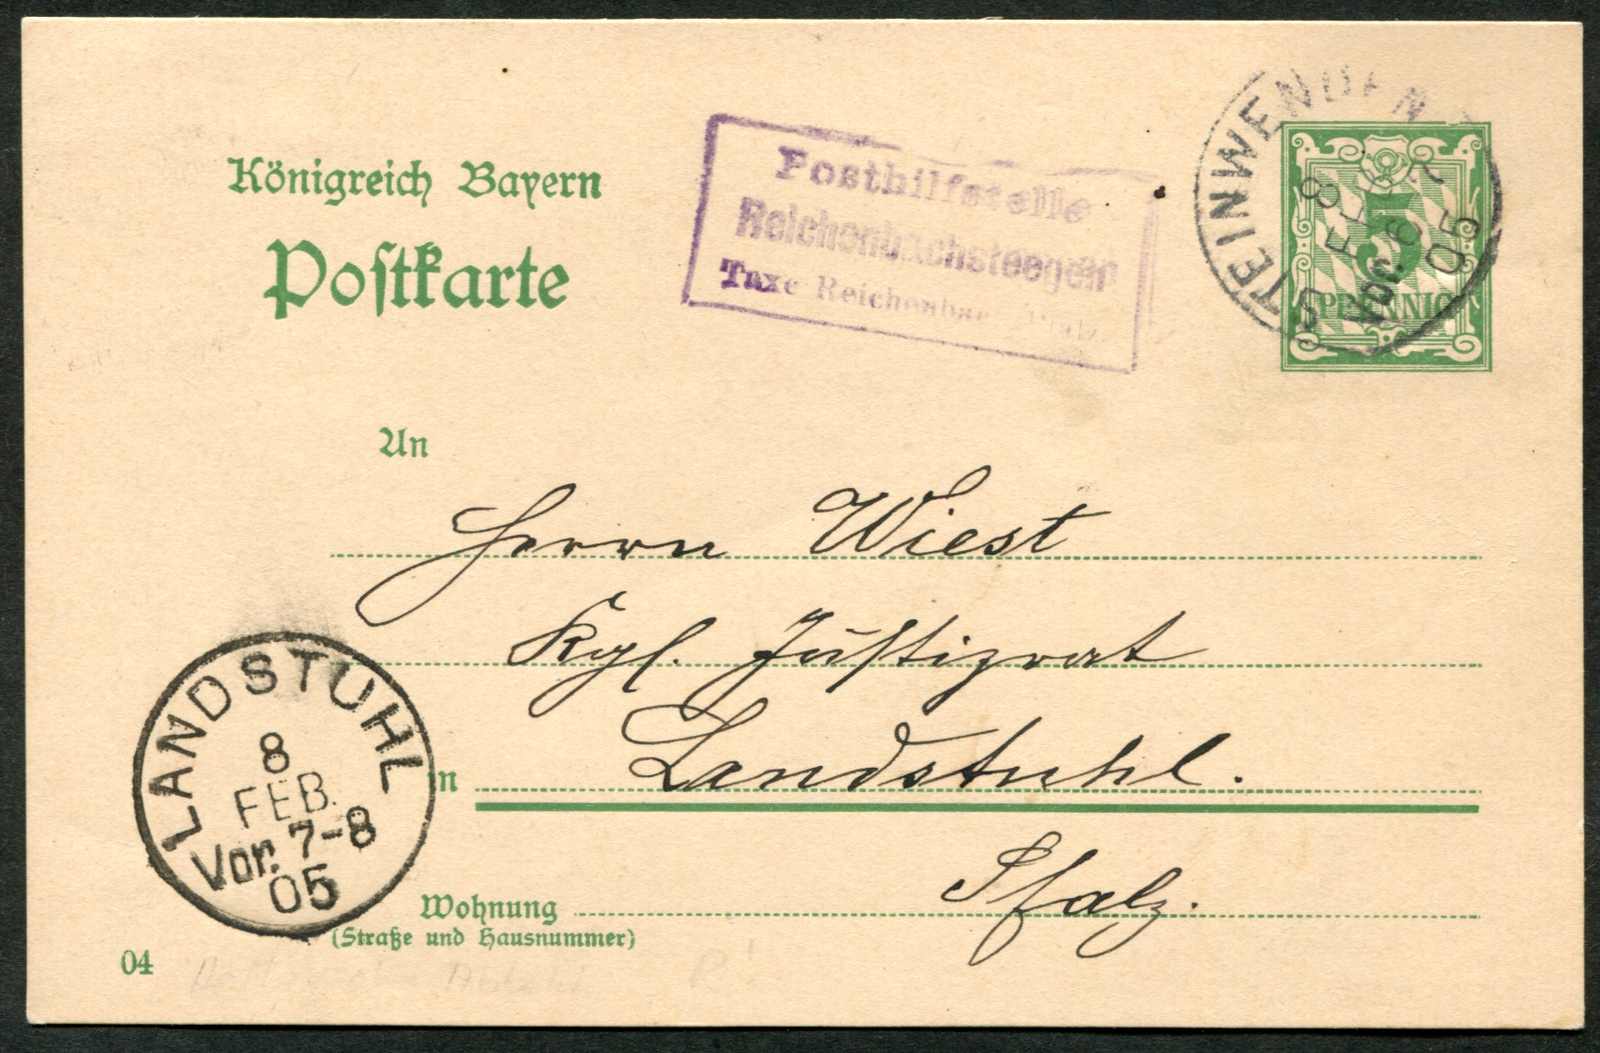 Königreich Bayern
Postkarte
Posthilfstelle
Reichenbachsteegen
Taxe Reichenbach Pfalz
STEINWENDEN
8
FEB
Vor. 6 7
05
5
PFENNIG
An
Herrn Wiest
Kgl. Justizrat
in Landstuhl.
Pfalz.
LANDSTUHL
8
FEB.
Vor. 7-8
05
Wohnung
(Straße und Hausnummer)
04